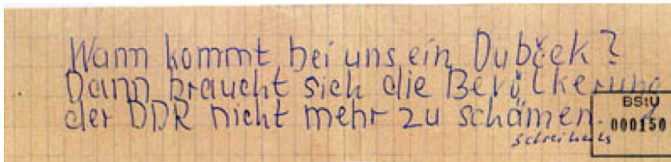 Wann kommt bei uns ein Dubček?
Dann braucht sich die Bevölkerung
der DDR nicht mehr zu schämen.
BStU
000150